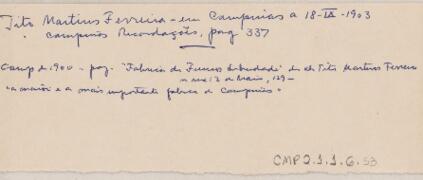 Tito Martins Ferreira - em Campinas a 18-IX-1903
Campinas Recordações, pag 337
Camp de 1900 - pag. "Fabrica de Fumos Liberdade" de Tito Martins Ferreira
n rua 13 de Maio, 129 -
"a maior e a mais importante fabrica de Campinas"
CMP2.1.1.6.53